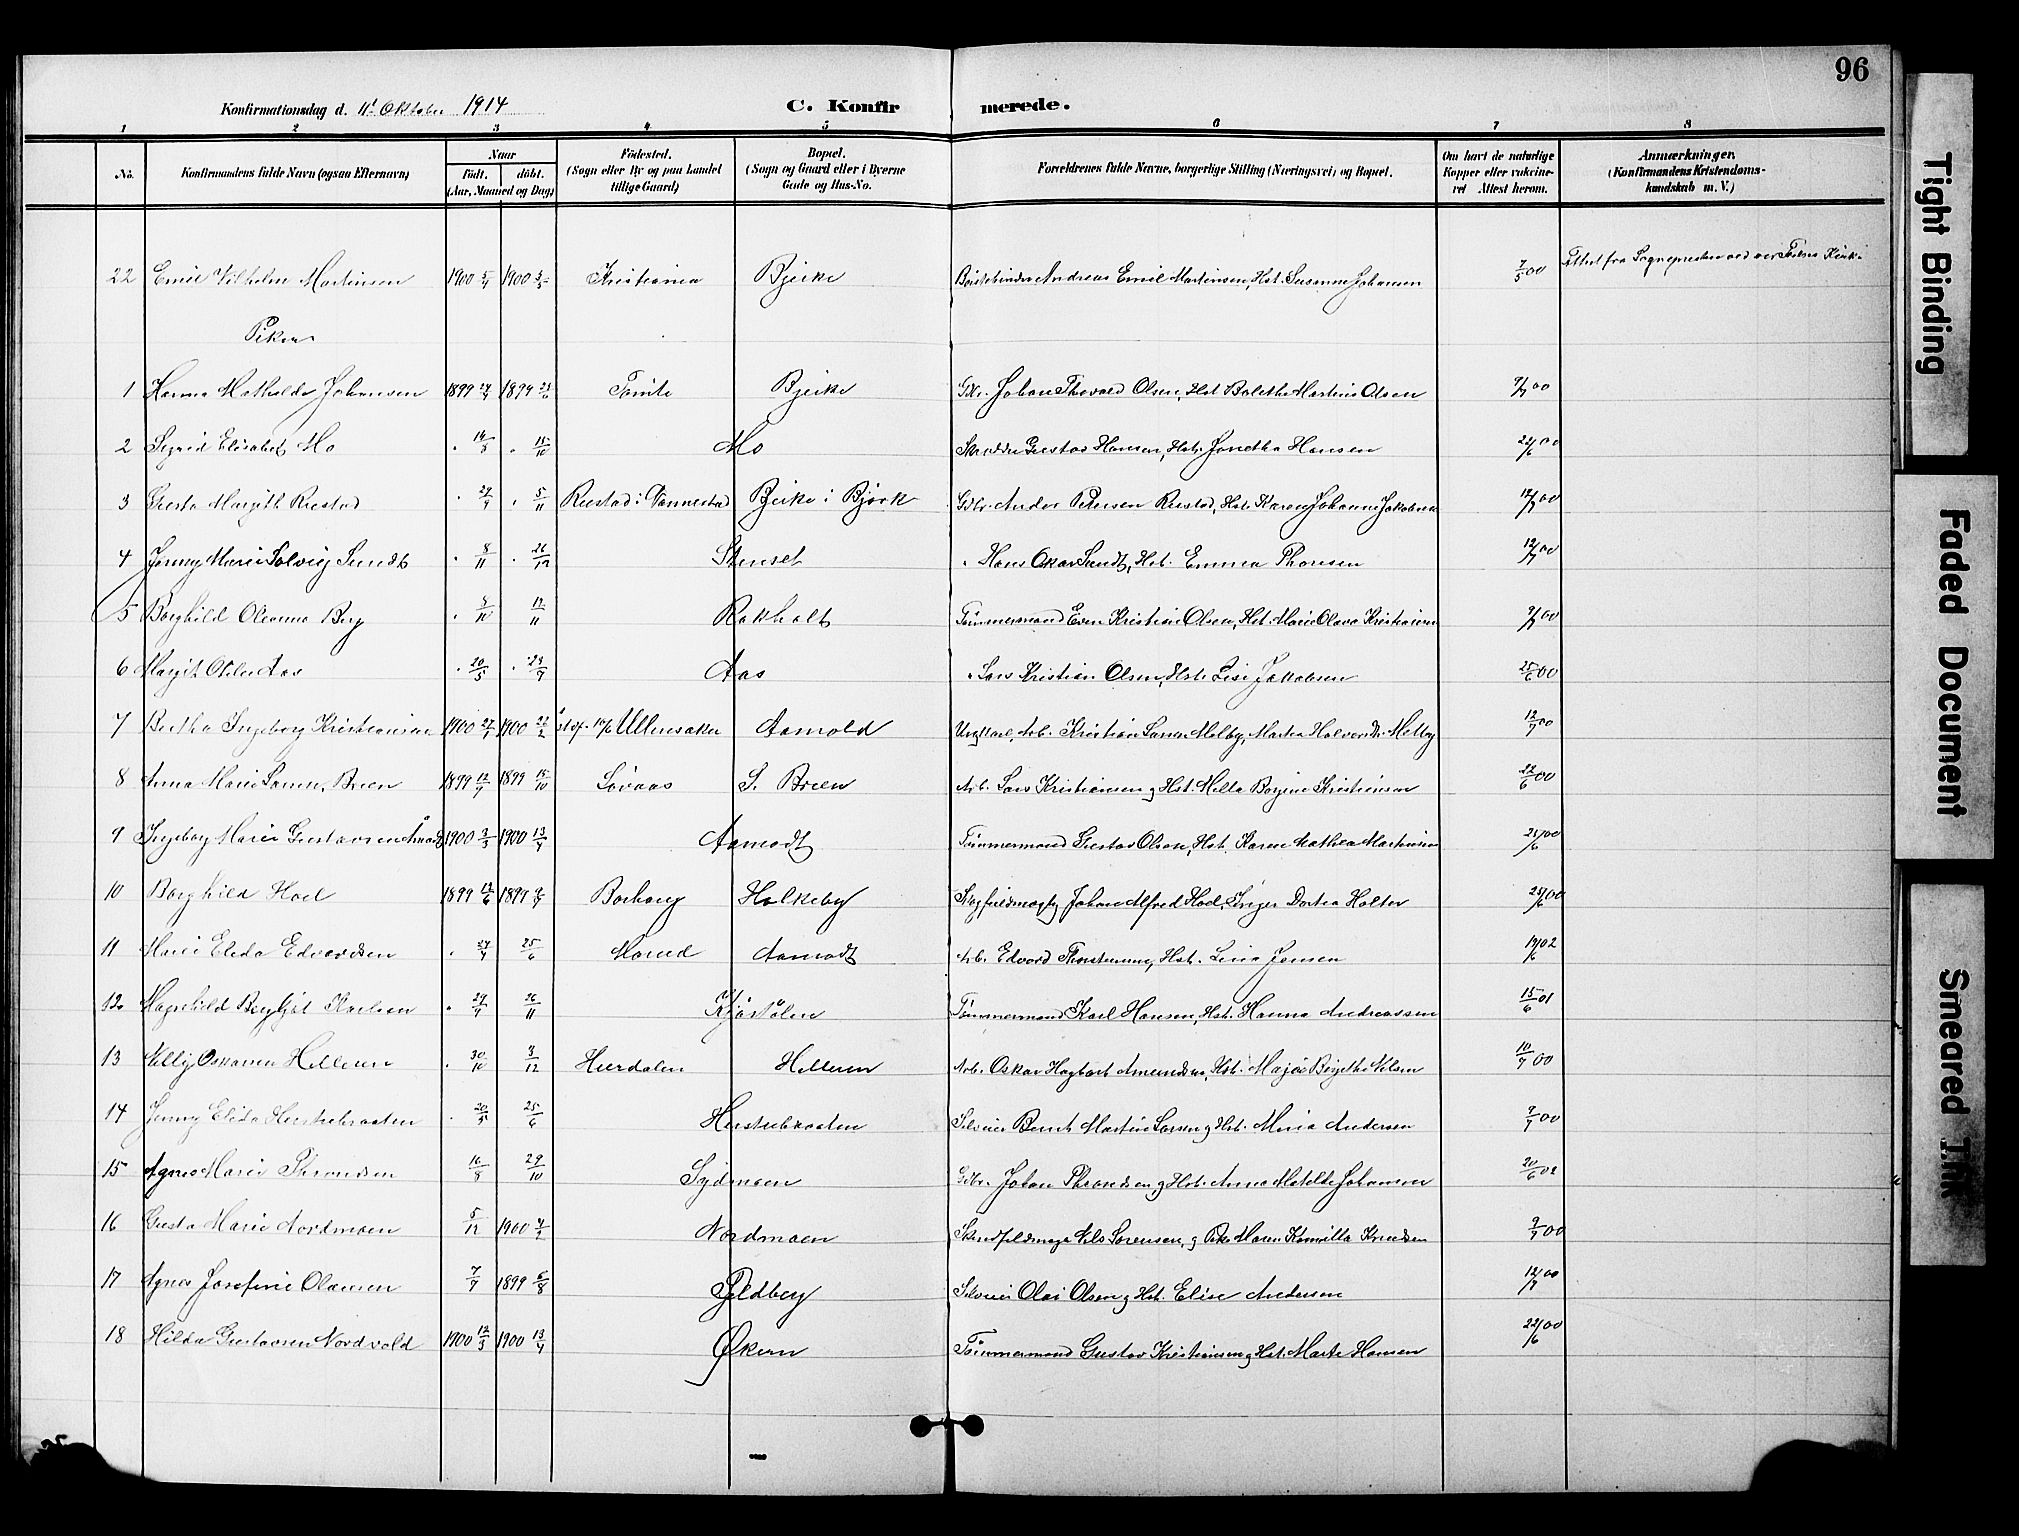 96
Konfirmationsdag d. 11' Oktober 1914 C. Konfir merede.
1 2 3 4 5 6 7 8
No. Konfirmandens fulde Navn (ogsaa Efternavn) Naar født. døbt. (Aar, Maaned og Dag) Fødested. (Sogn eller By og paa Landet tillige Gaard) Bopæl. (Sogn og Gaard eller i Byerne Gade og Hus-No. Forældrenes fulde Navne, borgerlige Stilling (Næringsvei) og Bopæl. Om havt de naturlige Kopper eller vakcineret Attest herom. Anmærkninger. (Konfirmandens Kristendomskundskab m. V.)
22 Emil Vilhelm Martinsen 1900 1900 Kristiania Bjerke Børstebinder Andreas Emil Martinsen, Hst. Susanne Johansen 7/5 00
Piker
1 Hanna Mathilde Johansen 1899 1899 Tømte Bjerke Gbr. Johan Thovald Olsen, Hst. Bolethe Martine Olsen 9/7 00
2 Sigrid Elisabet Mo " " 15/10 Mo Skrædder Gustav Hansen, Hst. Jonetha Hansen 22/6 00
3 Gusta Margith Rustad " " 5/11 Rustad i Nannestad Bjerke i Bjørk Gbr. Anders Petersen Rustad, Hst. Karen Johanne Jakobsen 12/7 00
4 Jenny Marie Solveig Sundt " 8/11 " 26/12 Stenset " Hans Oskar Sundt, Hst. Emma Thoresen 12/7 00
5 Borghild Oleanna Berg " 11 Rakholt Tømmermand Even Kristian Olsen, Hst. Marie Olava Kristiansen 9/7 00
6 Margit Otilie Aas " 20/5 " Aas " Lars Kristian Olsen, Hst. Lise Jakobsen 25/6 00
7 Bertha Ingeborg Kristiansen 1900 1900 Ullensaker Aamold Ungkarl, Arb. Kristian Larsen Melby, Martea Halvorsdtr. Melby 12/7 00
8 Anna Marie Larsen, Breen 1899 12/7 1899 15/10 Løvaas S. Breen Arb. Lars Kristiansen og Hst. Milla Borgine Kristiansen 22/6 00
9 Ingeborg Marie Gustavsen Åmodt 1900 1900 13/4 Aamodt Tømmermand Gustav Olsen, Hst. Karen Mathea Martinsen 25/6 00
10 Borghild Hoel 1899 1899 Holkeby Johan Alfred Hoel, Inger Dortea Holter 25/6 00
11 Marie Elida Edvardsen " 25/6 Mared Aamodt Arb. Edvard Hst. Lina Jensen 02
12 Magnhild Bergljot Karlsen " 26/11 Kjøstølen Tømmermand Karl Hansen, Hst. Hanna Andreassen 15/6 01
13 Nelly Oskarea Helleren " 30/10 3/12 Hurdalen Helleren Arb. Oskar Hagbart Amundsen, Hst. Maja Birgithe Nilsen 10/7 00
14 Jenny Elida Herstubraaten " 20/5 25/6 Herstubraaten Selveier Bernt Martin Larsen og Hst. Maria Andersen 9/7 00
15 Agnes Marie Throndsen 16/8 29/10 Sydmoen Gbr. Johan Throndsen og Hst. Anna Matilde Johansen 20/6 02
16 Gusta Marie Nordmoen 5/12 1900 Nordmoen Nils Sørensen, og Pike Maren Kamilla Knudsen 9/7 00
17 Agnes Josefine Olausen 7/7 1899 6/8 Feldberg Selveier Olai Olsen og Hst. Elise Andersen 12/7 00
18 Hilda Gustavsen Nordvold 1900 12/3 1900 13/4 Økern Tømmermand Gustav Kristiansen og Hst. Marte Hansen 22/6 00
Tight Binding
Faded Document
Smeared Ink